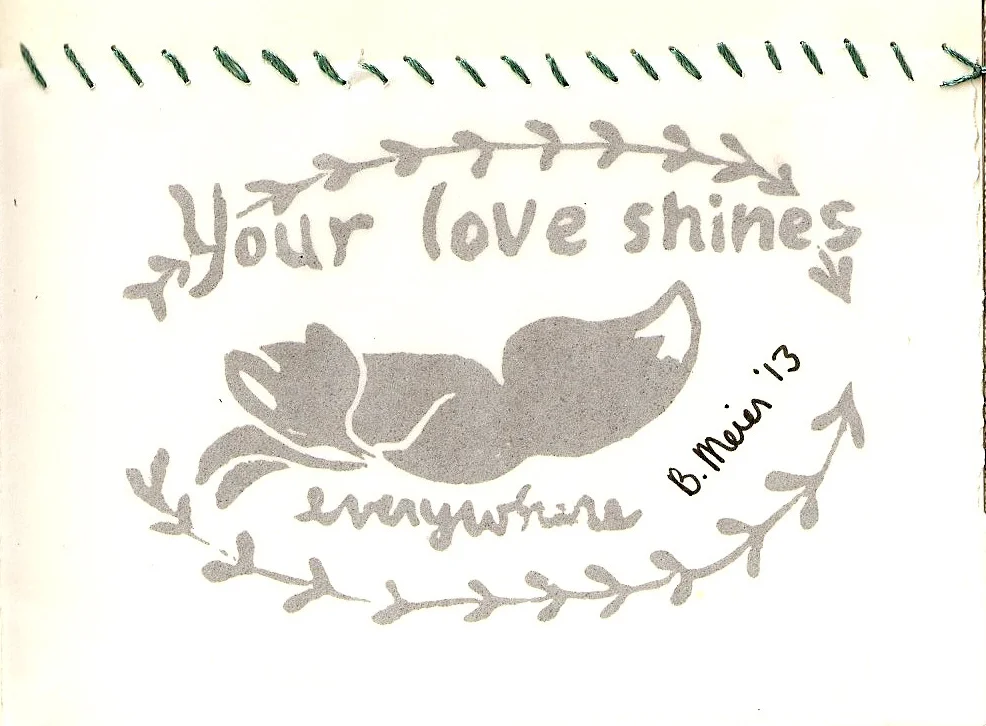 Your love shines
everywhere
B. Meier '13